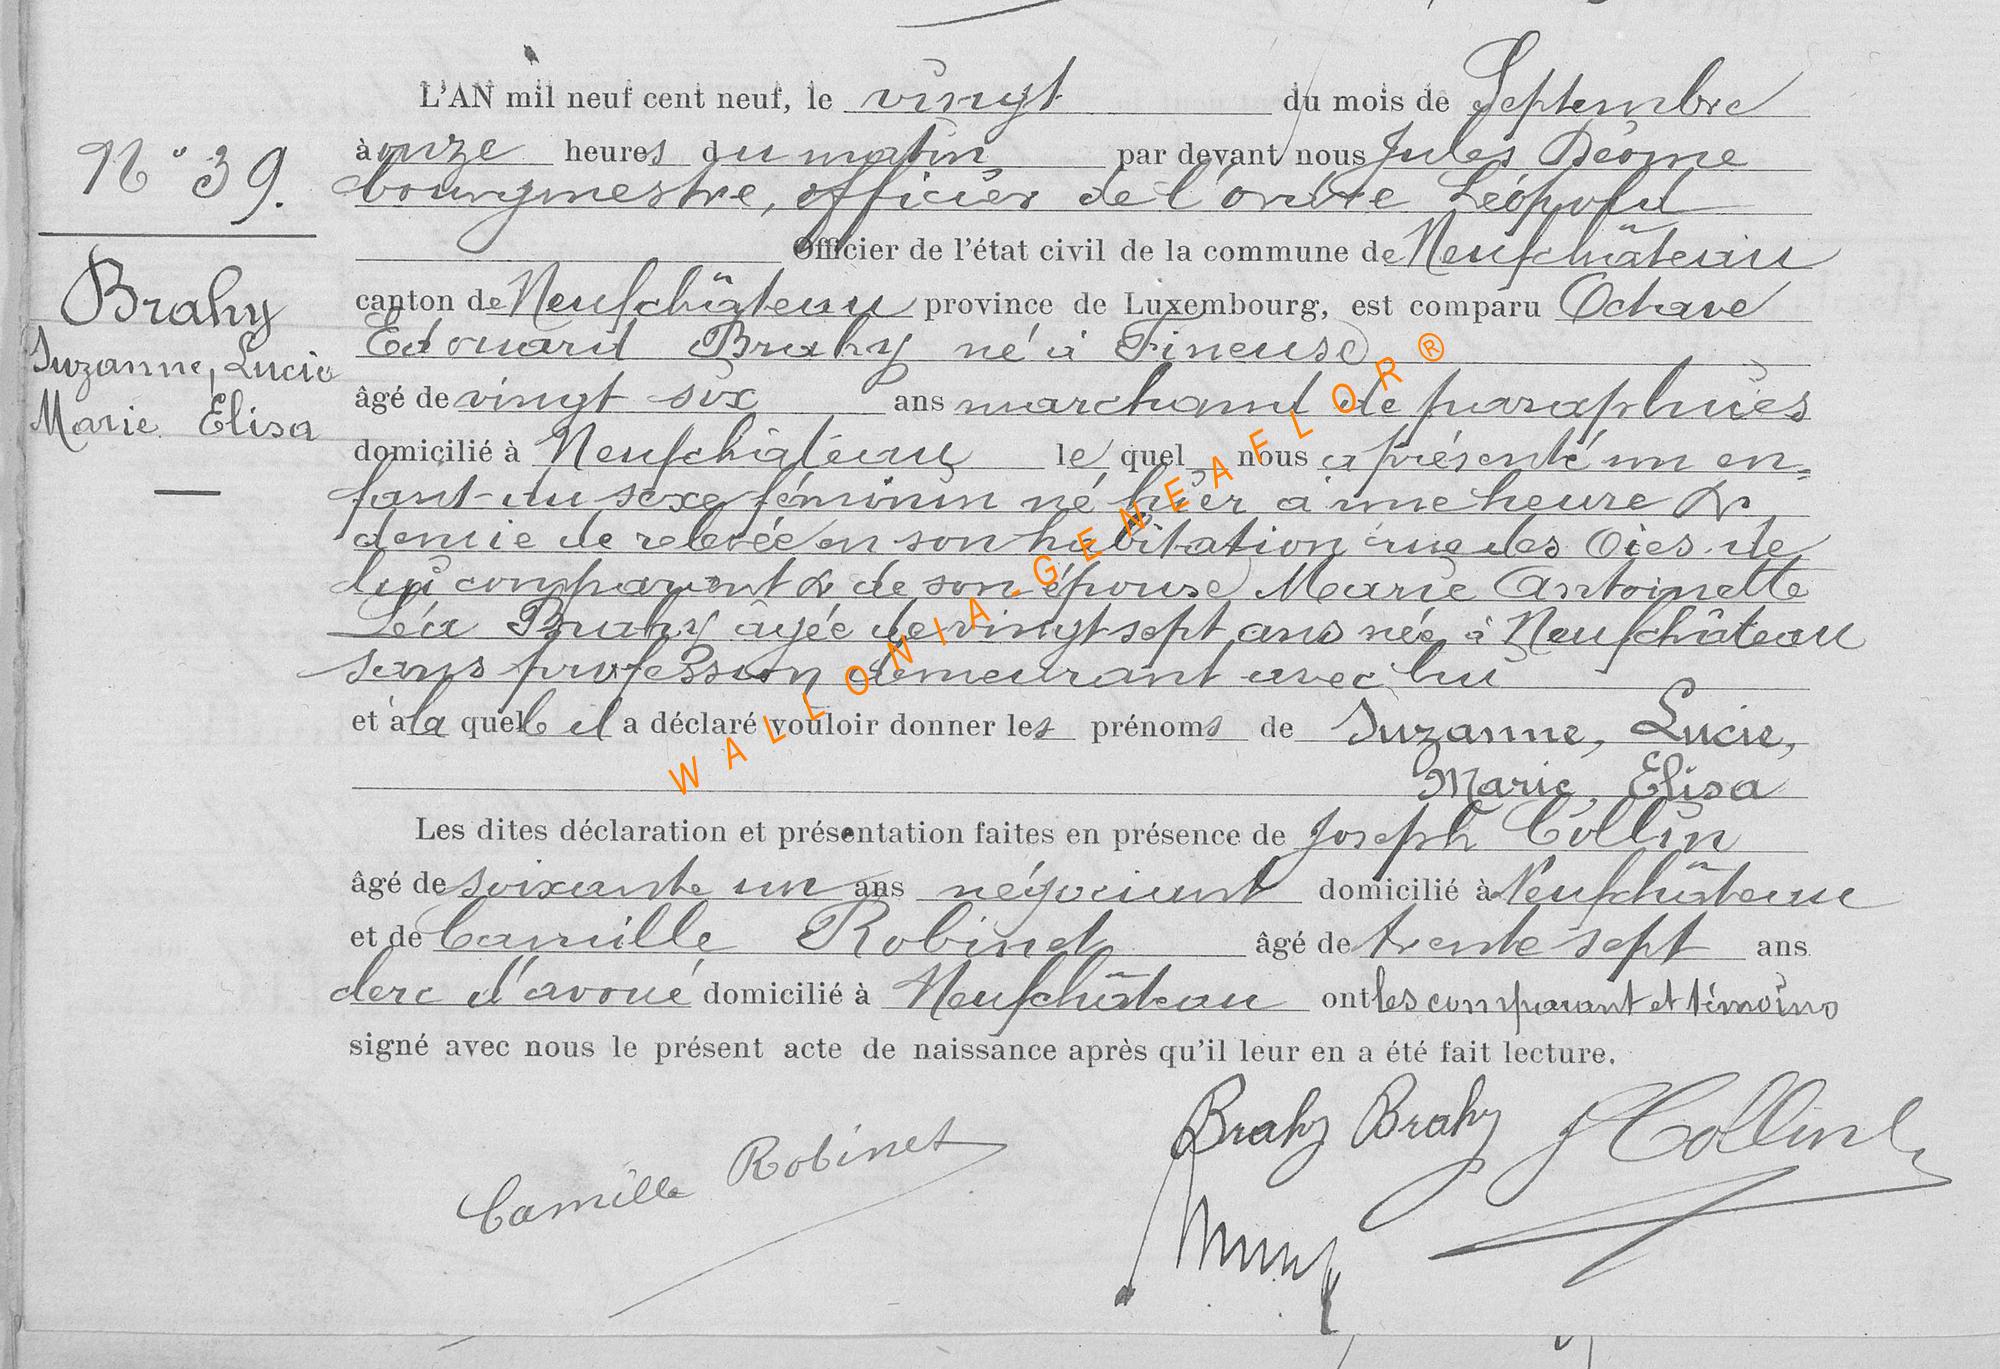 L'AN mil neuf cent neuf, le vingt du mois de Septembre
N° 39. à onze heures du matin par devant nous Jules
bourgmestre, officier de l'ordre Léopold
Officier de l'état civil de la commune de Neufchâteau
Brahy
Suzanne, Lucie
Marie Elisa
canton de Neufchâteau province de Luxembourg, est comparu Octave
Edouard Brahy né à Fineuse
âgé de vingt six ans marchand de parapluies
domicilié à Neufchâteau le quel nous a présenté un en=
fant du sexe féminin né hier à une heure &
demie de relevée en son habitation rue des Oies de
lui comparant & de son épouse Marie Antoinette
Léa Brahy âgée de vingt sept ans née à Neufchâteau
sans profession demeurant avec lui
et à la quelle il a déclaré vouloir donner les prénoms de Suzanne, Lucie,
Marie, Elisa
Les dites déclaration et présentation faites en présence de Joseph Collin
âgé de soixante un ans négociant domicilié à Neufchâteau
et de Camille Robinet âgé de trente sept ans
clerc d'avoué domicilié à Neufchâteau ont les comparant et témoins
signé avec nous le présent acte de naissance après qu'il leur en a été fait lecture.
Brahy Brahy J Collin
Camille Robinet
WALLONIA-GENEAFLOR®